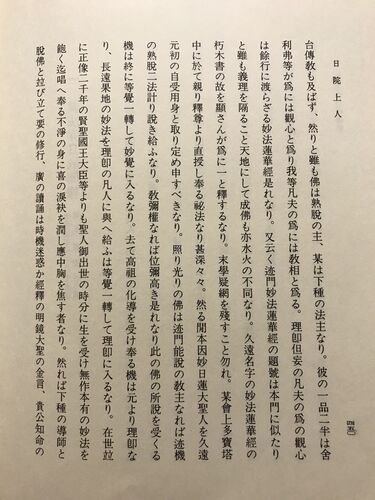 日院上人
(四五)
台傳敎も及ばず、然りと雖も佛は熟脫の主、某は下種の法主なり。彼の一品二半は舍
利弗等が爲には觀心と爲り我等凡夫の爲には敎相と爲る。理卽但妄の凡夫の爲の觀心
は餘行に渡らざる妙法蓮華經是れなり。又云く迹門妙法蓮華經の題號は本門に似たり
と雖も義理を隔ること天地にして成佛も亦水火の不同なり。久遠名字の妙法蓮華經の
朽木書の故を顯さんが爲に一と釋するなり。末學疑網を殘すこと勿れ。某會上多寶塔
中に於て親り釋尊より直授し奉る祕法なり甚深々々。然る間本因妙日蓮大聖人を久遠
元初の自受用身と取り定め申すべきなり。照り光りの佛は迹門能說の敎主なれば迹機
の熟脫二法計り說き給ふなり。敎彌權なれば位彌高き是れなり此の佛の所說を受くる
機は終に等覺一轉して妙覺に入るなり。去て高祖の化導を受け奉る機は元より理卽な
り、長遠果地の妙法を理卽の凡人に與へ給ふは等覺一轉して理卽に入るなり。在世竝
に正像二千年の賢聖國王大臣等よりも聖人御出世の時分に生を受け無作本有の妙法を
飽く迄唱へ奉る不淨の身に喜の淚袂を潤し應中胸を焦す者なり。然れば下種の導師と
脫佛と拉び立て要の修行、廣の讀誦は時機迷惑か經釋の明鏡大聖の金言、貴公知命の